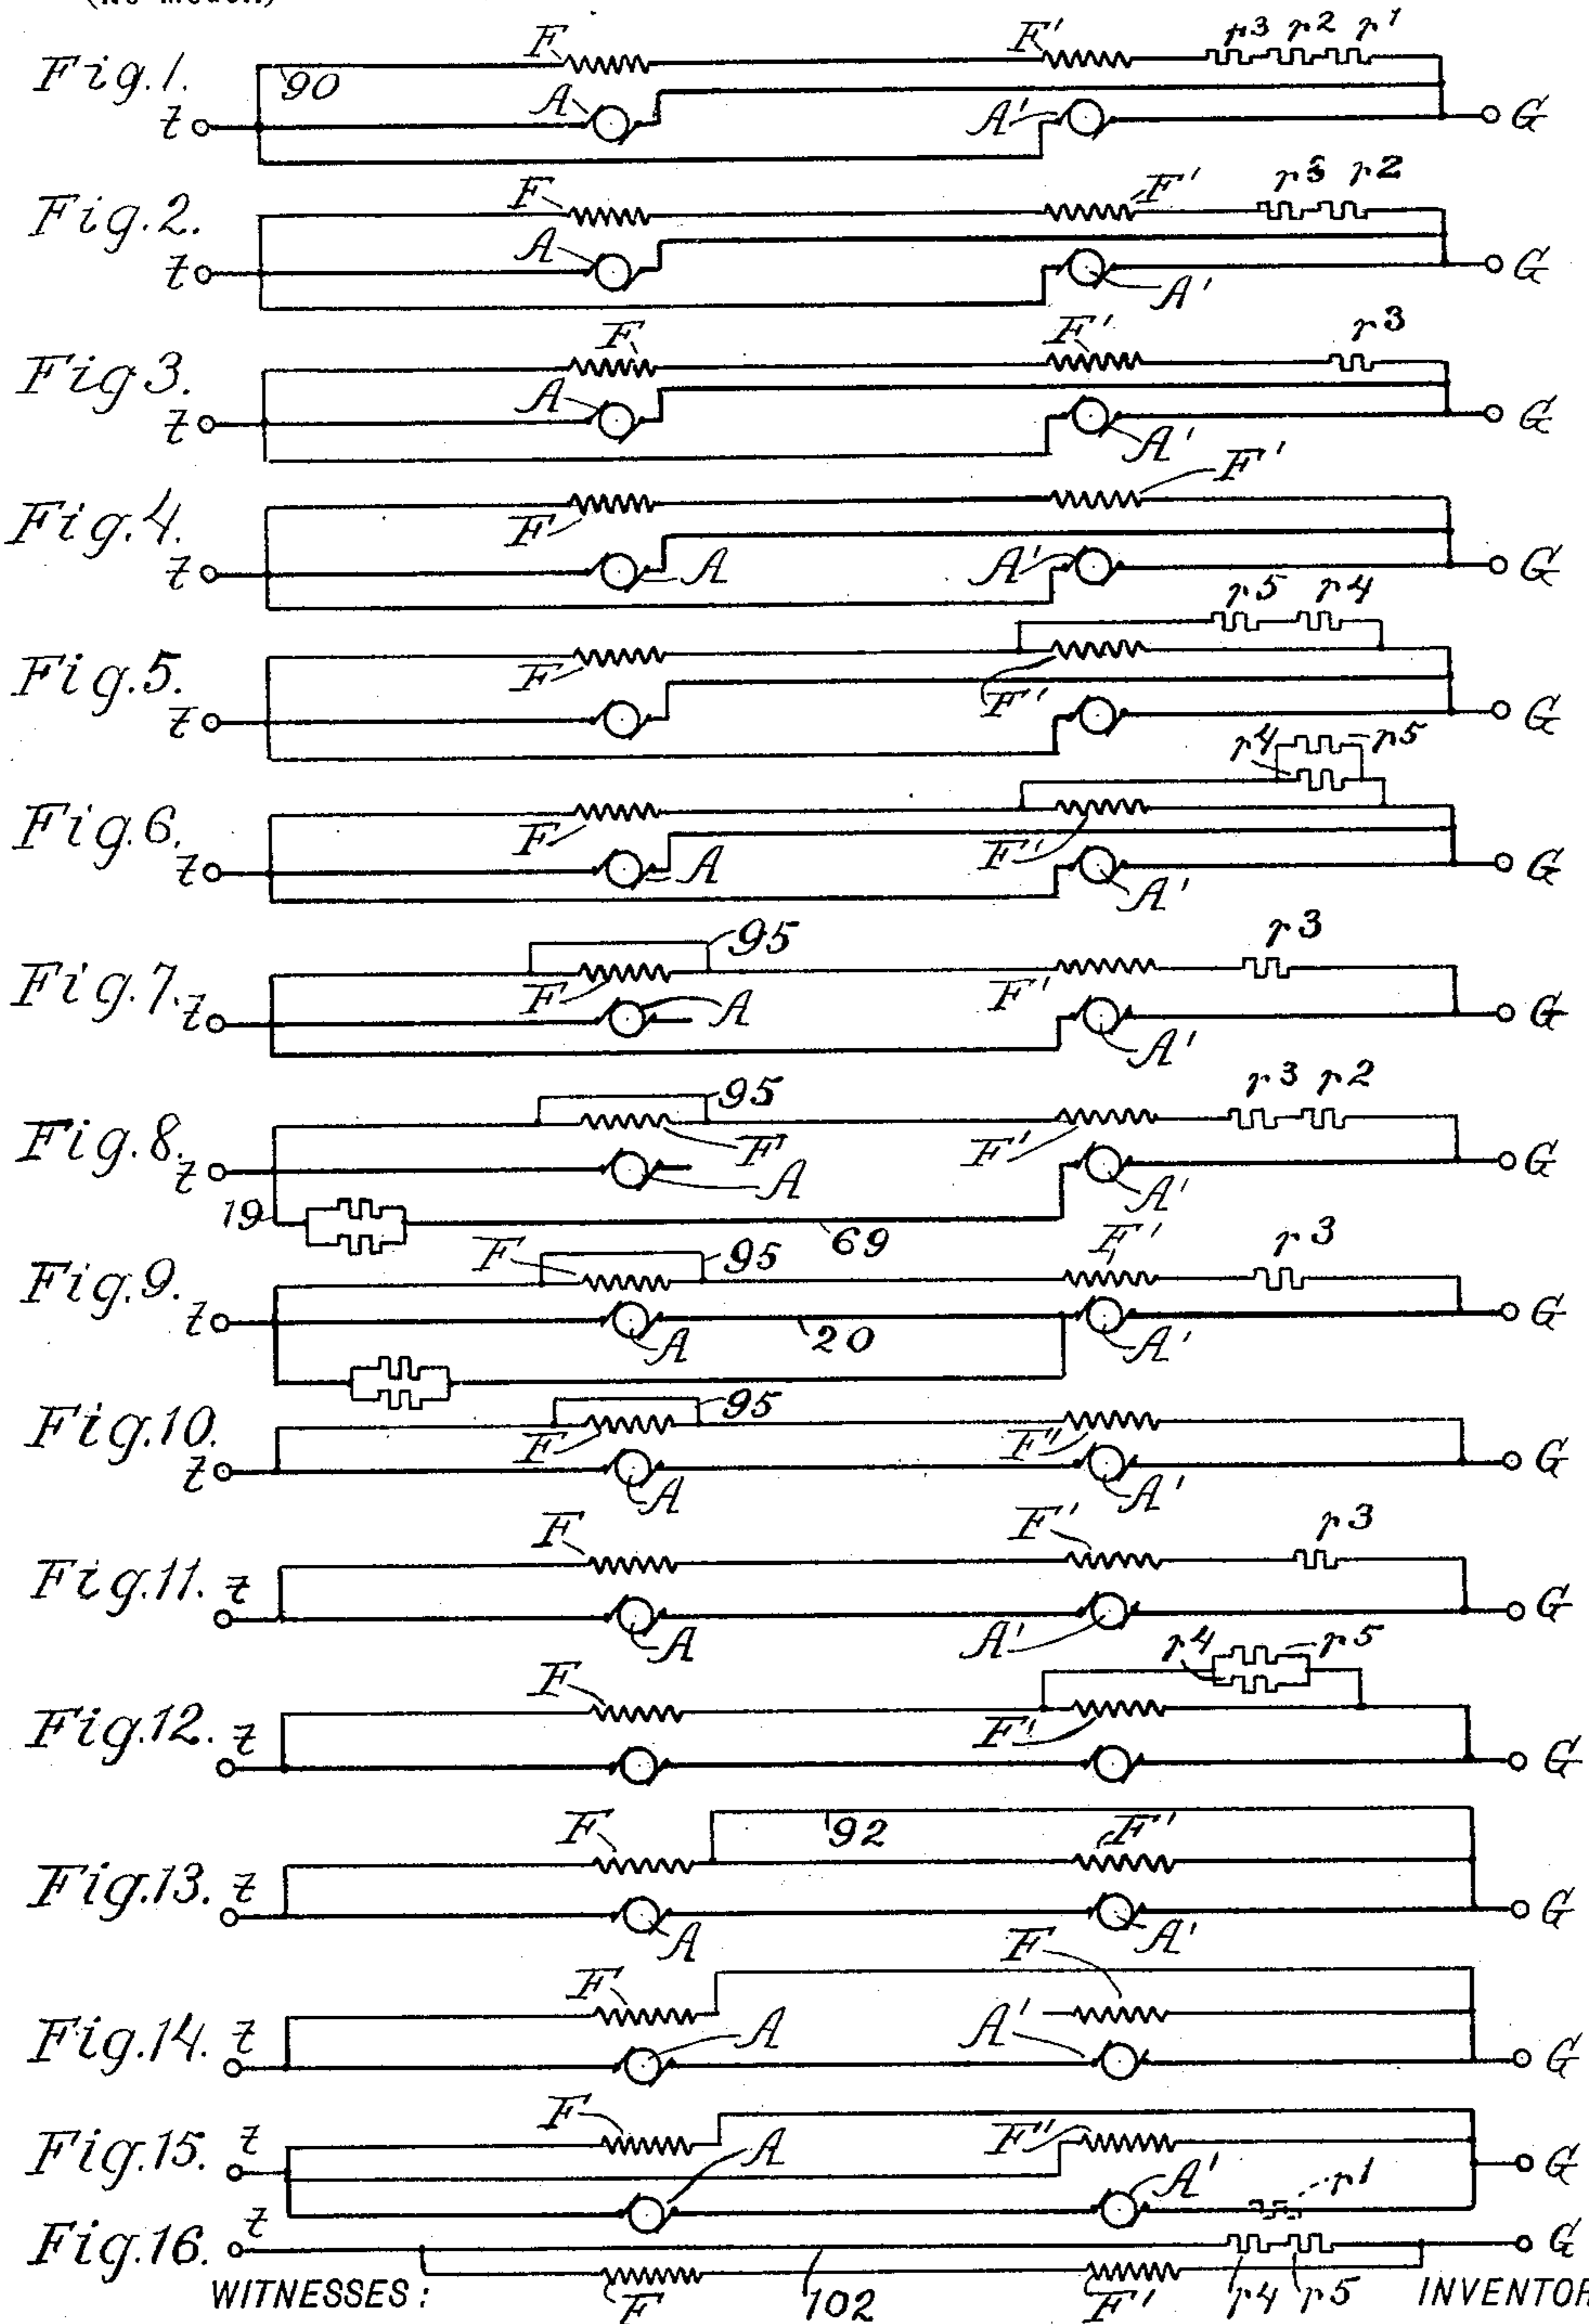 Fig. 1. 90 F A F' A' r3 r2 r1 t G
Fig. 2. F A F' A' r3 r2 t G
Fig 3. F A F' A' r3 t G
Fig. 4. F A A' F' t G
Fig. 5. F F' r5 r4 t G
Fig. 6. F A F' A' r4 r5 t G
Fig. 7. F 95 A F' A' r3 t G
Fig. 8. 95 F A F' A' r3 r2 t G
19 69
Fig. 9. F 95 A 20 F' A' r3 t G
Fig. 10. F 95 A F' A' t G
Fig. 11. t F A F' A' r3 G
Fig. 12. t F F' r4 r5 G
Fig. 13. t F A 92 F' A' G
Fig. 14. t F A A' F G
Fig. 15. t F A F' A' r1 G
Fig. 16. t F 102 F' r4 r5 G
WITNESSES: INVENTOR